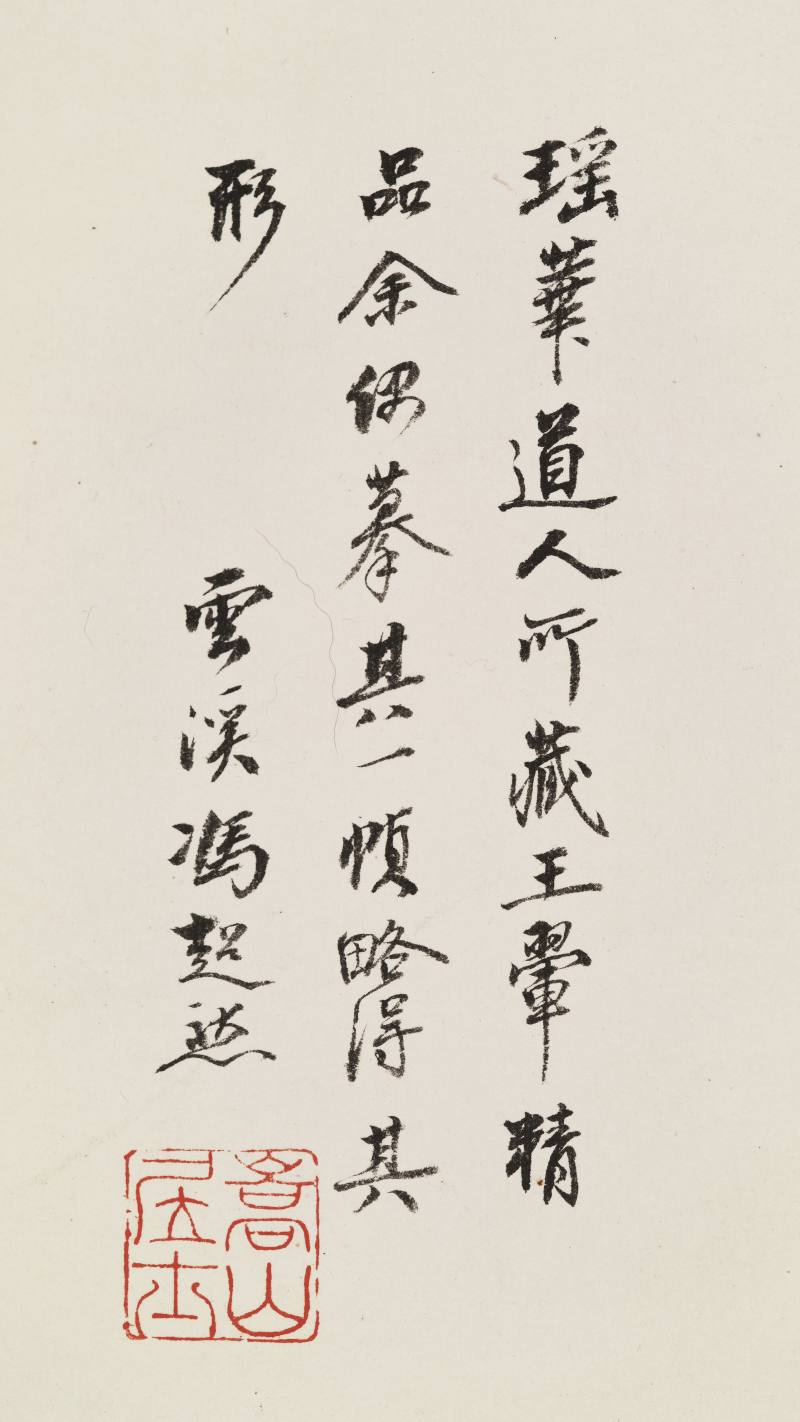 瑶華道人所藏王翬精
品余偶摹其一幀略得其
形
雲溪馮超然
嵩山
居士